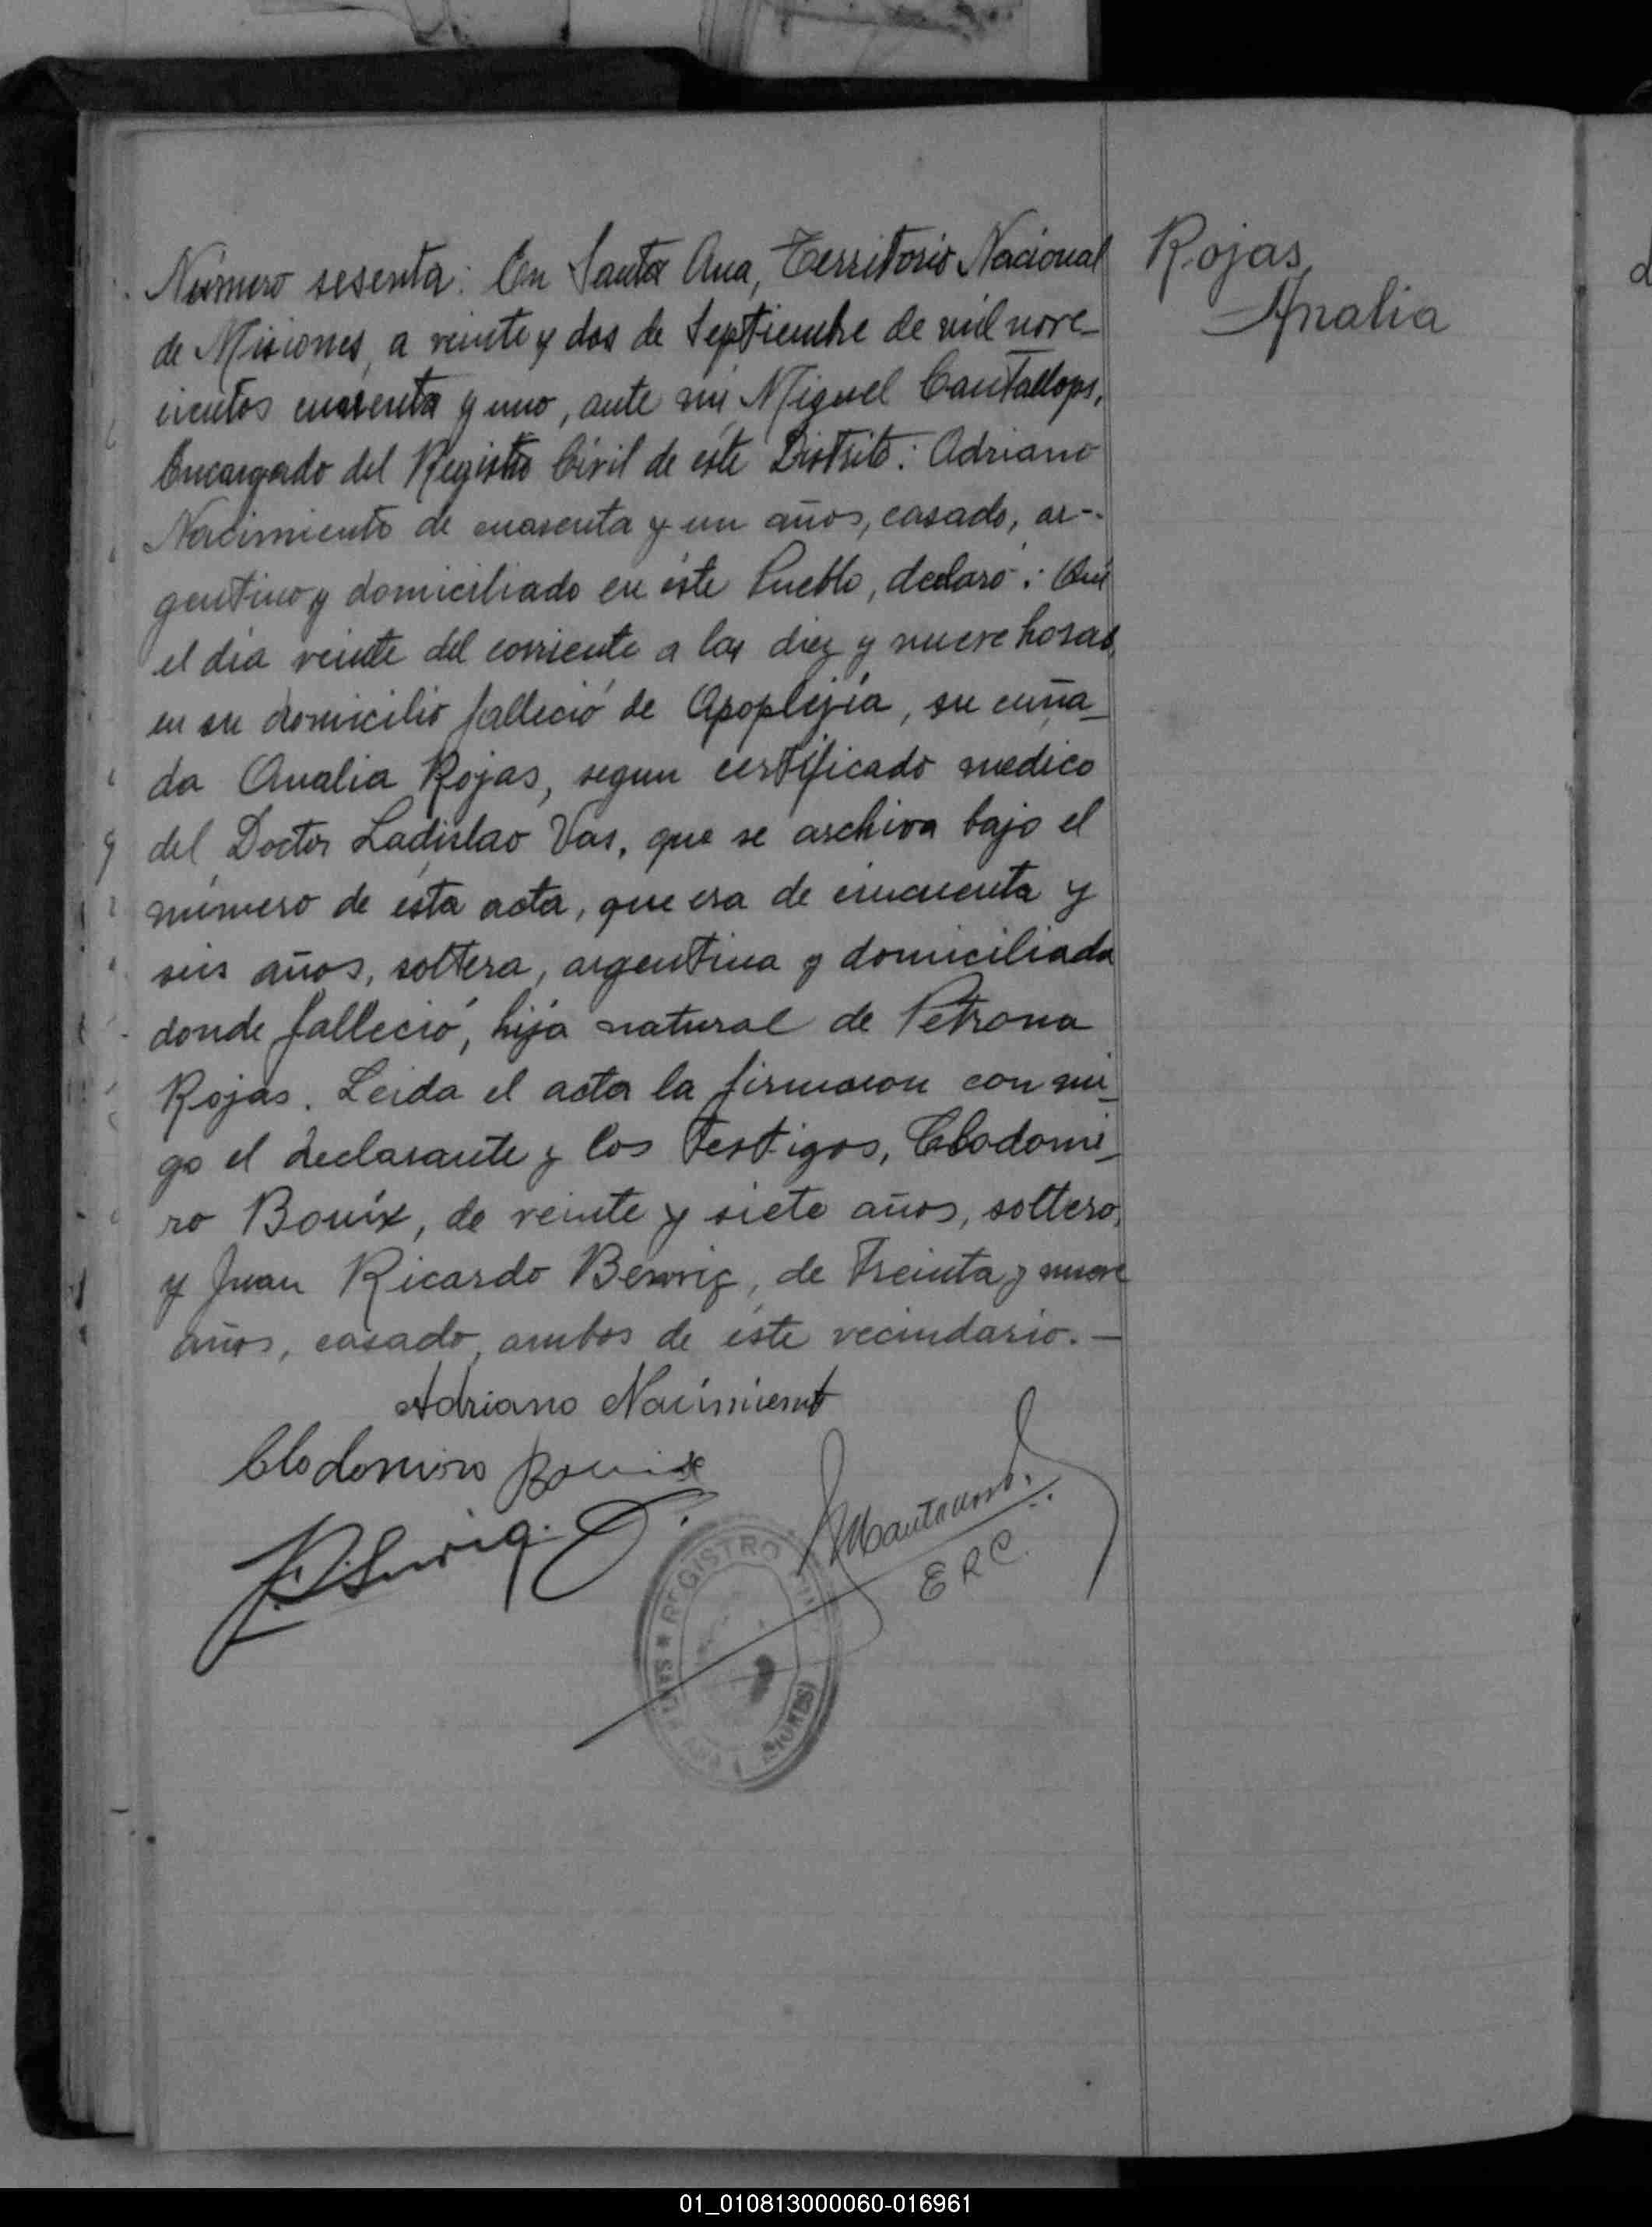 Número sesenta: En Santa Ana, Territorio Nacional
de Misiones, a veinte y dos de Septiembre de mil nove-
cientos cuarenta y uno, ante mi, Miguel Cantallops,
Encargado del Registro Civil de éste Distrito: Adriano
Nacimiento de cuarenta y un años, casado, ar-
gentino y domiciliado en éste Pueblo, declaró: Que
el dia veinte del corriente a las diez y nueve horas,
en su domicilio falleció de Apoplejía, su cuña-
da Analia Rojas, segun certificado medico
del Doctor Ladislao Vas, que se archiva bajo el
número de ésta acta, que era de cincuenta y
seis años, soltera, argentina y domiciliada
donde falleció, hija natural de Petrona
Rojas. Leida el acta la firmaron con mi-
go el declarante y los testigos, Clodomi-
ro Bouix, de veinte y siete años, soltero,
y Juan Ricardo Berwig, de treinta y nueve
años, casado, ambos de éste vecindario.-
Adriano Nacimiento
Clodomiro Bouix
E R C.
REGISTRO
SANTA ANA
Rojas,
Analia
01_010813000060-016961